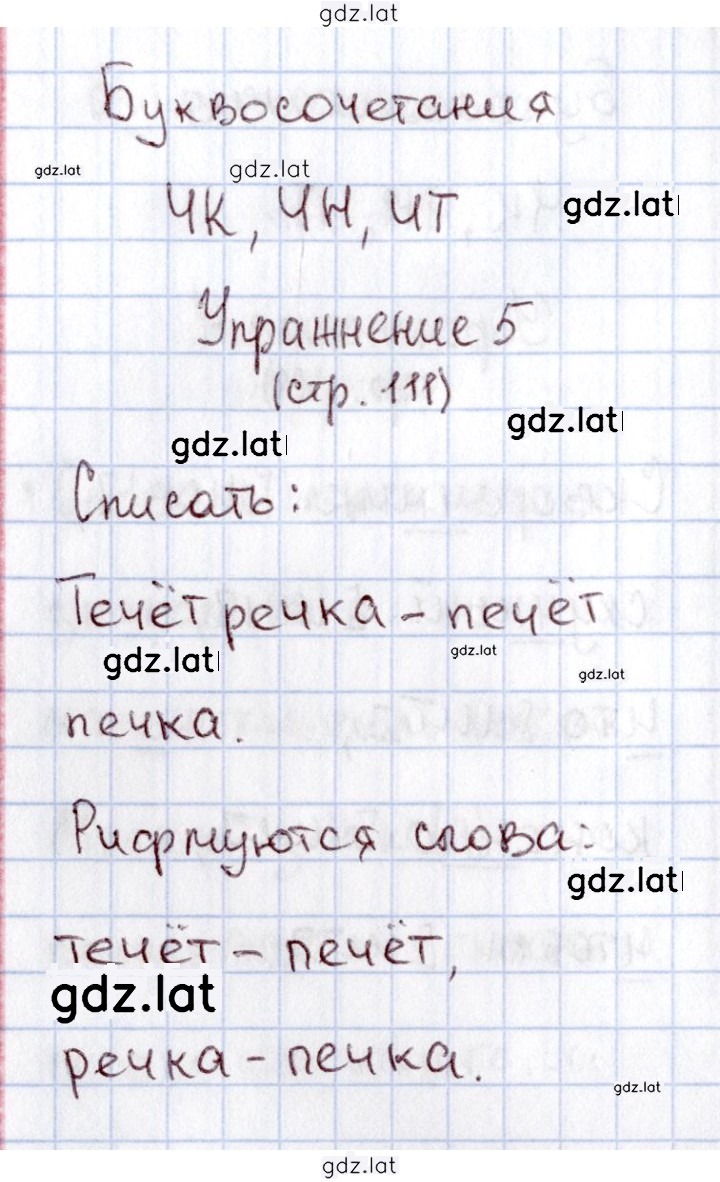 gdz.lat
Буквосочетания
gdz.lat gdz.lat
ЧК, ЧН, ЧТ gdz.lat
Упражнение 5
(стр. 111) gdz.lat
gdz.lat
Списать:
Течёт речка – печёт
gdz.lat gdz.lat
gdz.lat
печка.
Рифмуются слова:
gdz.lat
течёт – печёт,
gdz.lat
речка – печка.
gdz.lat
gdz.lat